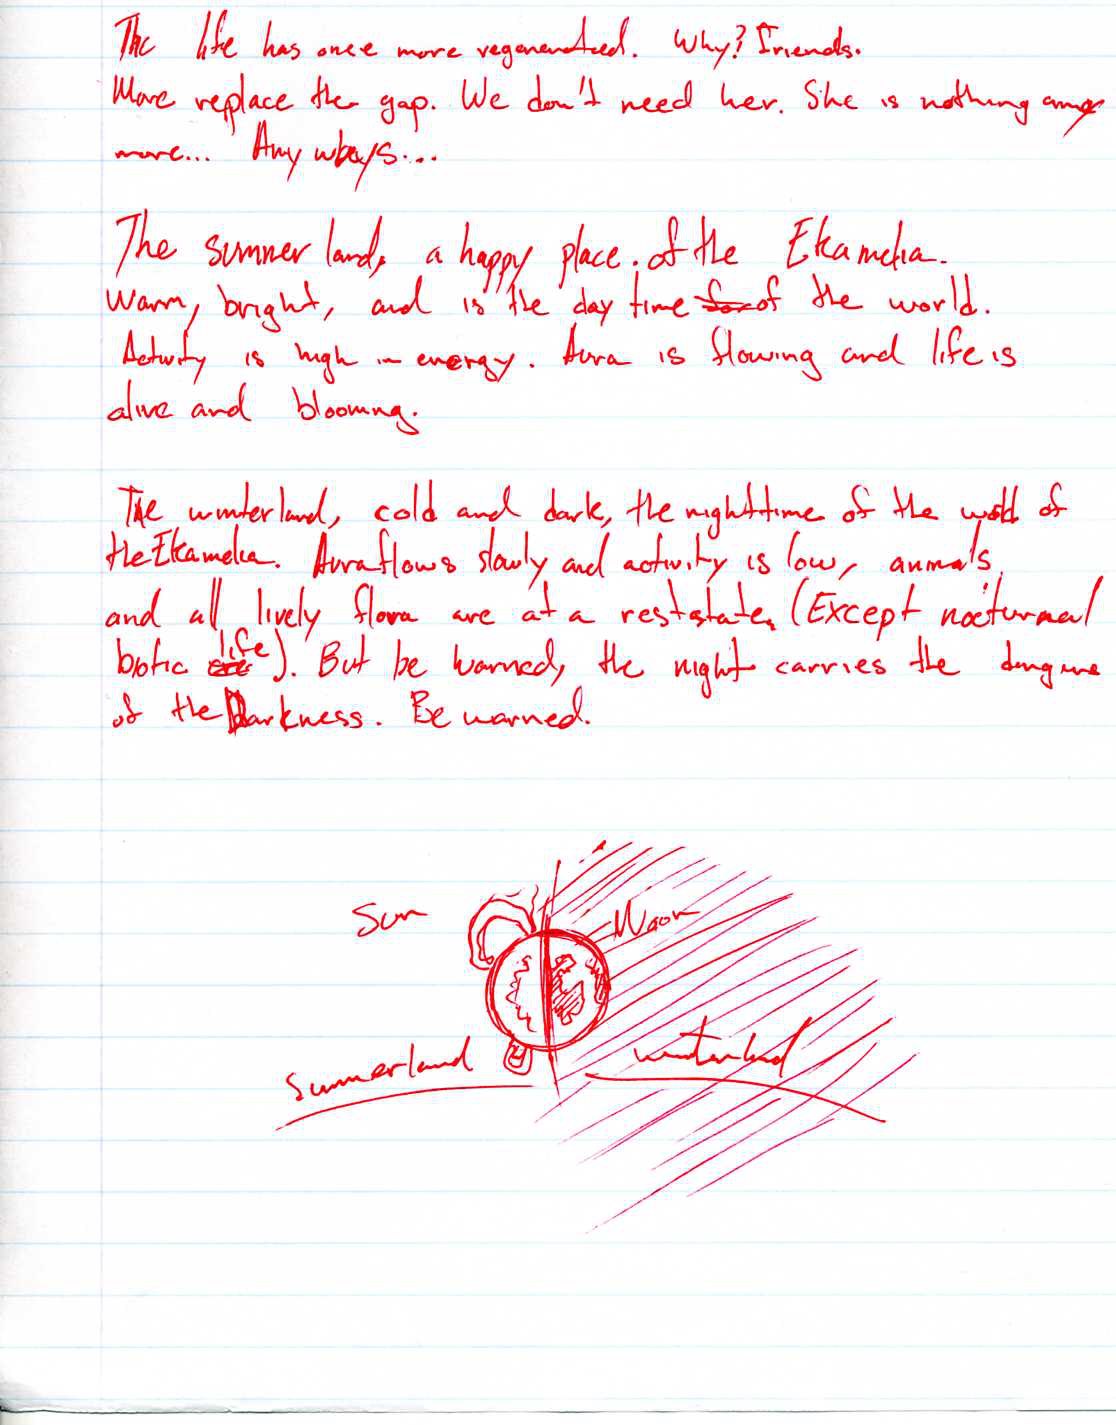 The life has once more regenerated. Why? Friends.
More replace the gap. We don't need her. She is nothing any
more... Any ways...
The summer land, a happy place. of the Ekamelia.
Warm, bright, and is the day time of the world.
Activity is high in energy. Aura is flowing and life is
alive and blooming.
The winterland, cold and dark, the nighttime of the world of
the Ekamelia. Aura flows slowly and activity is low, animals,
and all lively flora are at a reststate. (Except nocturnal
biotic life). But be warned, the night carries the dangers
of the Darkness. Be warned.
Sun
Moon
Summerland
winterland